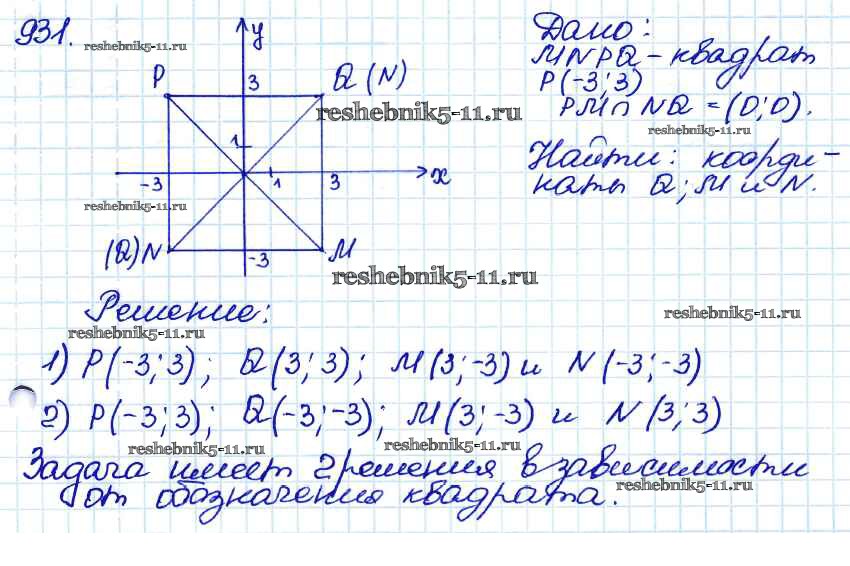 931.
reshebnik5-11.ru
y
P
3
Q (N)
reshebnik5-11.ru
1
-3
1
3
x
reshebnik5-11.ru
(Q) N
-3
M
reshebnik5-11.ru
Дано:
MNPQ - квадрат
P(-3; 3)
PM ∩ NQ = (0; 0).
reshebnik5-11.ru
Найти: коорди-
наты Q; M и N.
Решение:
reshebnik5-11.ru
reshebnik5-11.ru
1) P(-3; 3); Q(3; 3); M(3; -3) и N(-3; -3)
2) P(-3; 3); Q(-3; -3); M(3; -3) и N(3; 3)
reshebnik5-11.ru
reshebnik5-11.ru
Задача имеет 2 решения в зависимости
от обозначения квадрата.
reshebnik5-11.ru